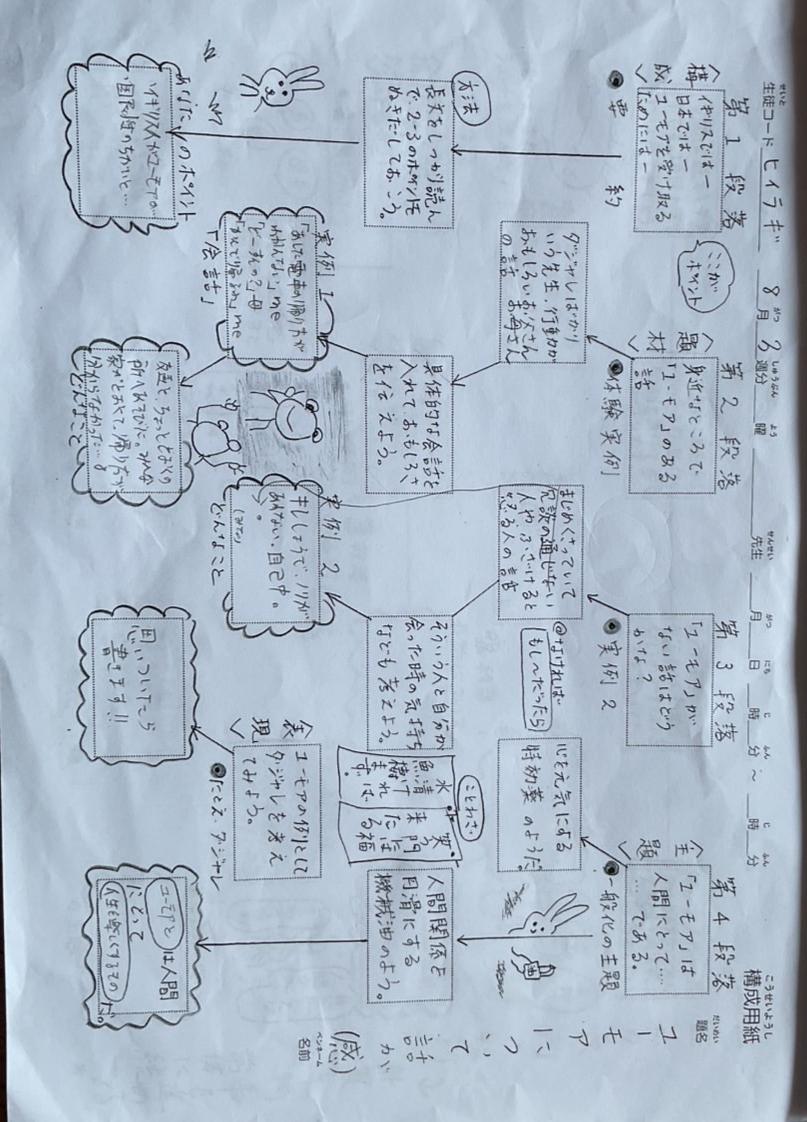 構成用紙
こうせいようし
生徒コード ヒイラギ 8月 3週分 曜 先生 月 日 時 分 ~ 時 分
せいと がつ しゅうぶん よう せんせい がつ にち じ ふん じ ふん
題名
だいめい
ユーモアについて
(感)
話が
ペンネーム
名前
第1段落
<構成>
イギリスでは一
日本では一
ユーモアを受け取る
ためには一
●要約
方法
長文をしっかり読ん
で、2~3のポイントを
ぬきだしておこう。
あなたのポイント
イギリス人がユーモアが
困った時の
第2段落
ここが
ポイント
<題材>
身近なところで
「ユーモア」のある
話
●体験実例
ダジャレばかり
いう先生、行動が
おもしろいお父さん
お母さん
の話
具体的な会話を
入れておもしろさ
を伝えよう。
実例1
「あした電車の帰り方が
わかんない」me
母
me
「会話」
友達とちょっととおくの
所へあそびに。みんな
家がとおくて、帰り方が
分からなかった…。
どんなこと
第3段落
「ユーモア」が
ない話はどう
かな?
●実例2
はじめくさっていて
冗談の通じない
人や、ふざけると
怒る人の話
@なければ
もし〜だったら
そういう人と自分が
会った時の気持ち
なども考えよう。
実例2
ノリが
あわない。自己中。
どんなこと
<表現>
ユーモアの例として
ダジャレを考え
てみよう。
●たとえ・ダジャレ
思いついたら
書きます!!
第4段落
<主題>
「ユーモア」は
人間にとって…
…である。
●一般化の主題
心を元気にする
特効薬のようだ。
ことわざ
笑う門には福
来たる
水清ければ
魚棲まず。
人間関係を
円滑にする
機械油のよう。
油
ユーモアとは人間
にとって
人生を楽しくするもの
だ。